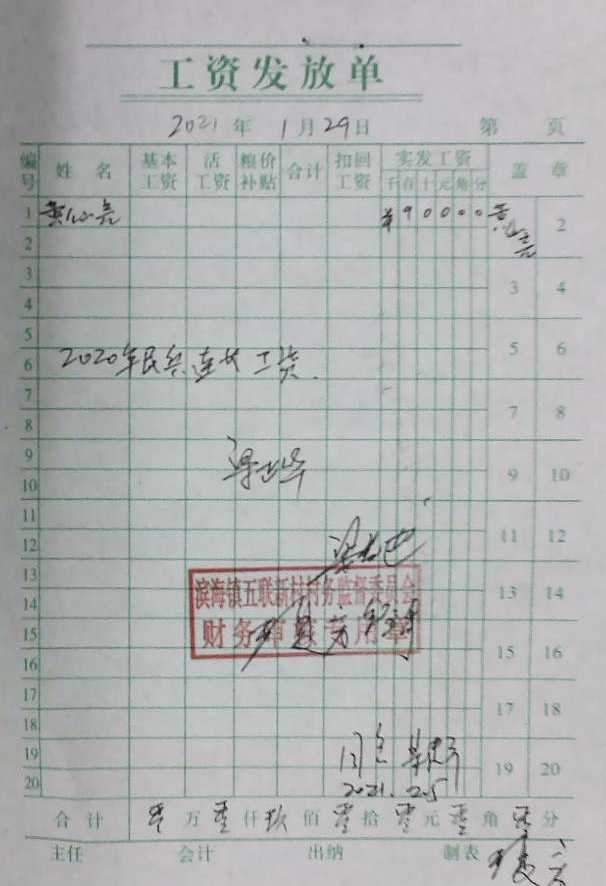 工资发放单
2021 年 1 月 29 日 第 页
编号 姓名 基本工资 活工资 粮价补贴 合计 扣回工资 实发工资 盖章
千 百 十 元 角 分
1 ¥90000 2
2
3 3 4
4
5 5 6
6 2020年民兵连长工资
7 7 8
8
9 9 10
10
11 11 12
12
13 13 14
滨海镇五联新村村务监督委员会
14
财务审核专用章
15 15 16
16
17 17 18
18
19 同意 19 20
2021.2.5
20
合计 零万零仟玖佰零拾零元零角零分
主任 会计 出纳 制表